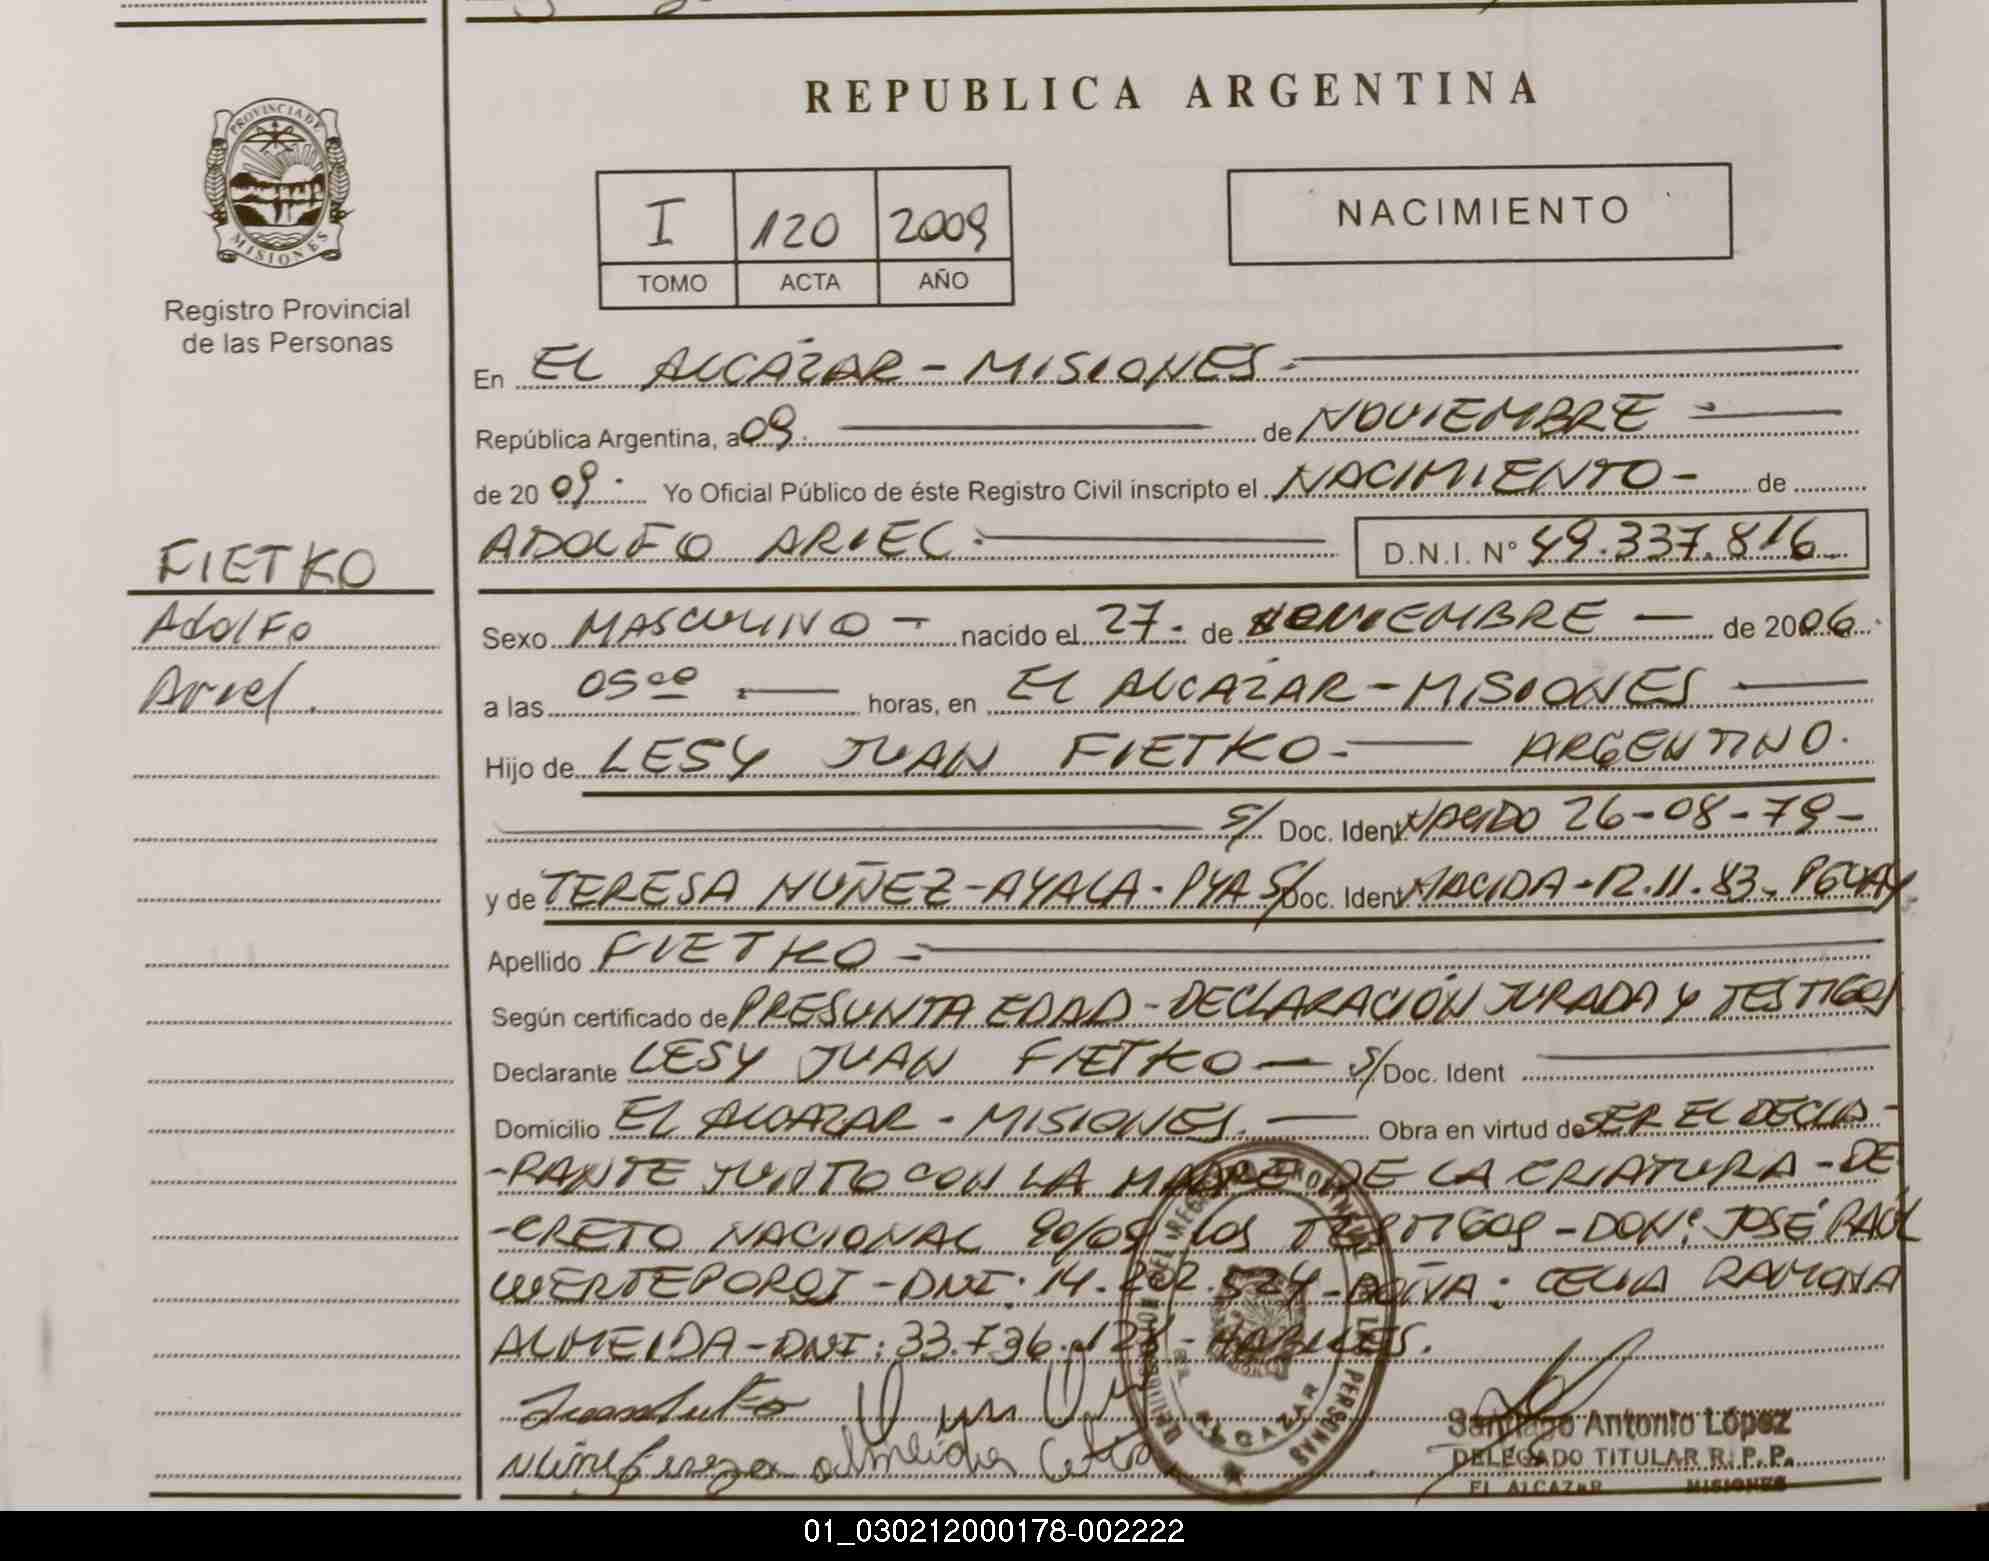 REPUBLICA ARGENTINA
PROVINCIA DE
MISIONES
Registro Provincial
de las Personas
I 120 2009
TOMO ACTA AÑO
NACIMIENTO
En EL ALCÁZAR - MISIONES -
República Argentina, a 09. de NOVIEMBRE -
de 20 09. Yo Oficial Público de éste Registro Civil inscripto el NACIMIENTO - de
ADOLFO ARIEL. D.N.I. N° 49.337.816
FIETKO
Adolfo
Ariel.
Sexo MASCULINO - nacido el 27. de NOVIEMBRE - de 2006.
a las 05 00 horas, en EL ALCAZAR - MISIONES -
Hijo de LESY JUAN FIETKO - ARGENTINO.
S/ Doc. Ident. NACIDO 26-08-79-
y de TERESA NUÑEZ - AYALA - PYA S/ Doc. Ident. NACIDA - 12.11.83. PGUAY
Apellido FIETKO -
Según certificado de PRESUNTA EDAD - DECLARACIÓN JURADA Y TESTIGOS
Declarante LESY JUAN FIETKO - S/ Doc. Ident
Domicilio EL ALCAZAR - MISIONES. Obra en virtud de SER EL DECLA-
-RANTE JUNTO CON LA MADRE DE LA CRIATURA - DE
-CRETO NACIONAL 90/09 LOS TESTIGOS - DON: JOSÉ RAÚL
DNI: 14. - DOÑA: CELIA RAMONA
ALMEIDA - DNI: 33.736.128 - HABILES.
almeida Celia
Santiago Antonio López
DELEGADO TITULAR R.P.P.
EL ALCAZAR MISIONES
01_030212000178-002222